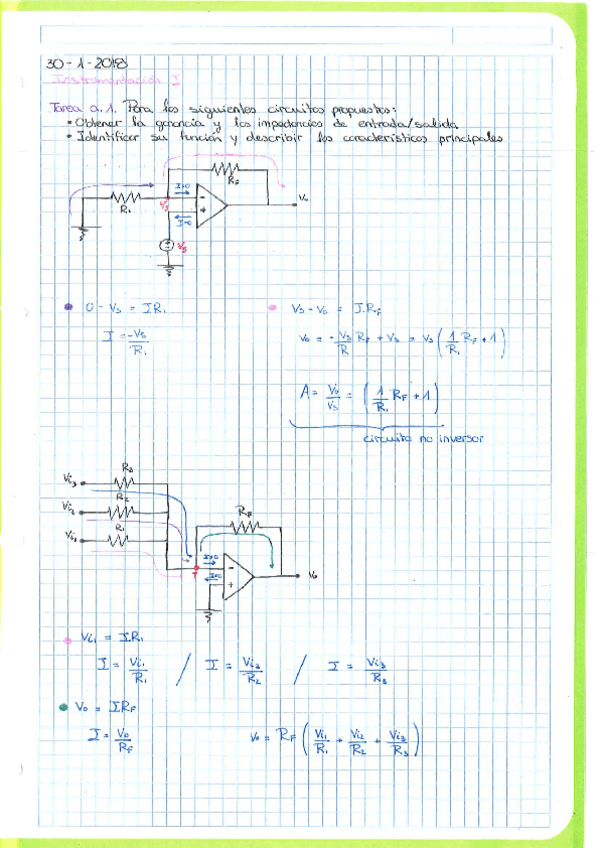 30-1-2018
Instrumentación I
Tarea a.1. Para los siguientes circuitos propuestos:
• Obtener la ganancia y las impedancias de entrada/salida
• Identificar su función y describir las características principales
I=0
RF
R1
Vo
I=0
Vs
0 - Vs = IR1
Vs - Vo = I.RF
I = -Vs/R1
Vo = - Vs/R RF + Vs = Vs (1/R1 RF + 1)
A = Vo/Vs = (1/R1 RF + 1)
circuito no inversor
R3
Vi3
R2
Vi2
RF
R1
Vi1
I=0
I=0
Vo
Vi1 = I.R1
I = Vi1/R1 / I = Vi2/R2 / I = Vi3/R3
Vo = I.RF
I = Vo/RF
Vo = RF (Vi1/R1 + Vi2/R2 + Vi3/R3)